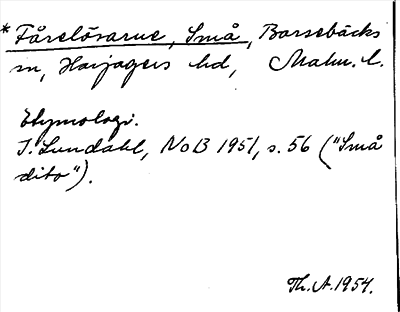 * Fårelövarne, Små, Barsebäcks
sn, Harjagers hd, Malm. l.
Etymologi.
I. Lundahl, NoB 1951, s. 56 ("Små
dito").
Th. A. 1954.